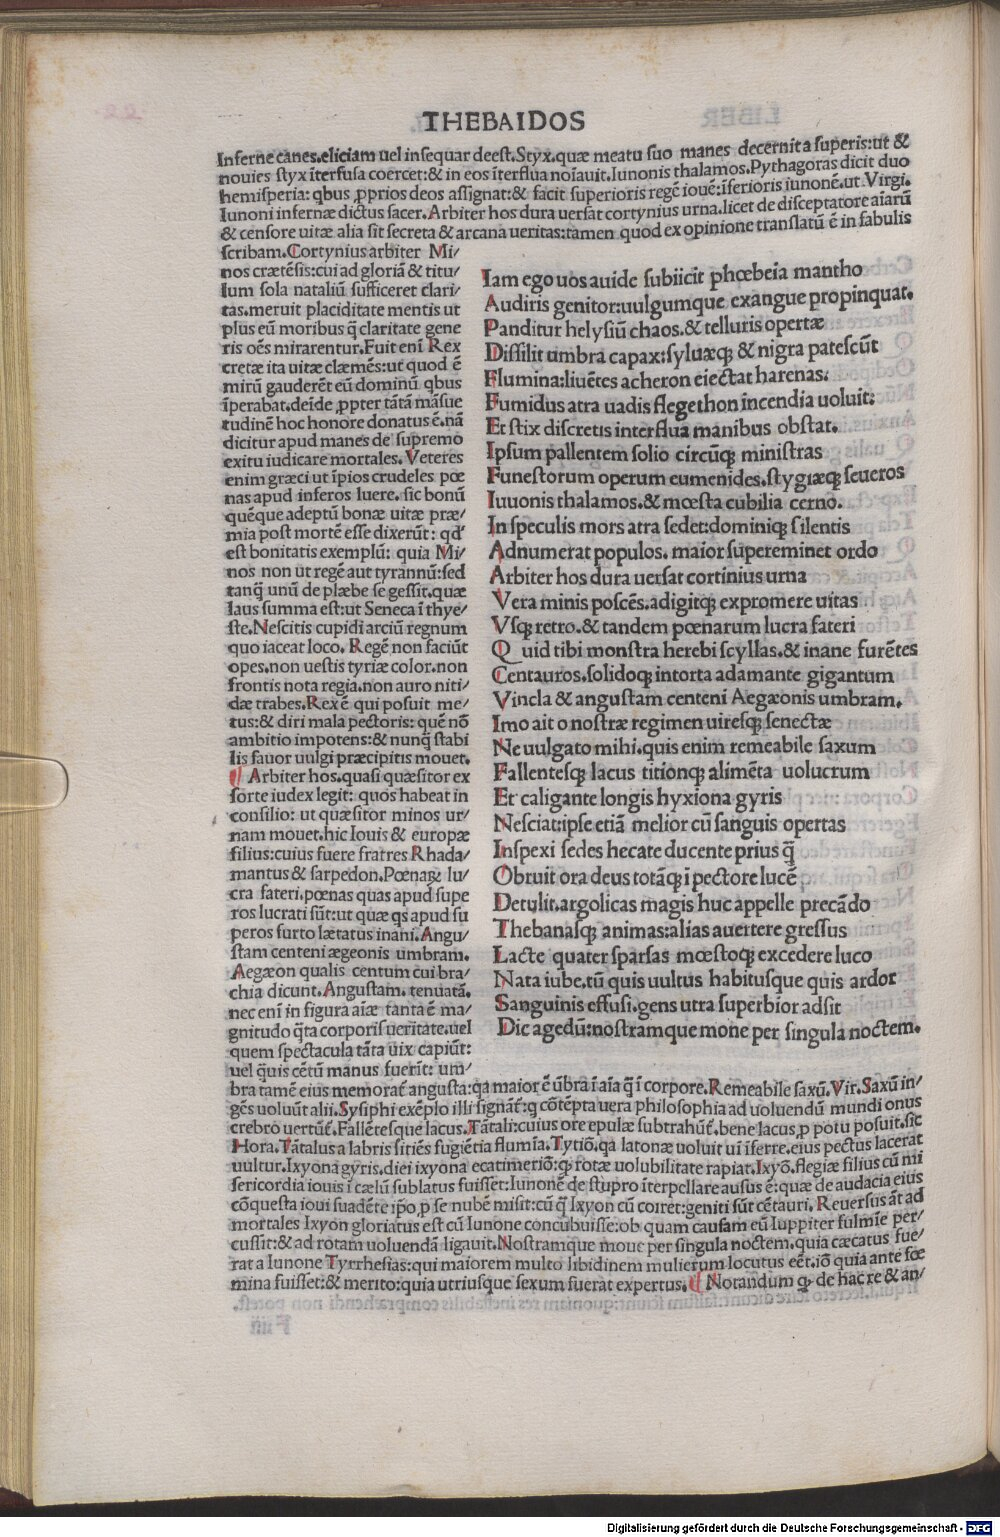 THEBAIDOS
Inferne canes.eliciam uel insequar deest.Styx.quæ meatu suo manes decernit a superis:ut &
nouies styx īterfusa coercet:& in eos īterflua noīauit.Iunonis thalamos.Pythagoras dicit duo
hemisperia: qbus ꝓprios deos assignat:& facit superioris regē iouē:īferioris iunonē.ut Virgi.
Iunoni infernæ dictus sacer.Arbiter hos dura uersat cortynius urna.licet de disceptatore aīarū
& censore uitæ alia sit secreta & arcana ueritas:tamen quod ex opinione translatū ē in fabulis
scribam.Cortynius arbiter Mi/
nos crætēsis:cui ad gloriā & titu/
lum sola nataliū sufficeret clari/
tas.meruit placiditate mentis ut
plus eū moribus q̄ claritate gene
ris oēs mirarentur.Fuit enī Rex
cretæ ita uitæ clæmēs:ut quod ē
mirū gauderēt eū dominū qbus
īperabat.deīde ꝓpter tātā māsue
tudinē hoc honore donatus ē.nā
dicitur apud manes de supremo
exitu iudicare mortales.Veteres
enim græci ut īpios crudeles pœ
nas apud inferos luere.sic bonū
quēque adeptū bonæ uitæ præ/
mia post mortē esse dixerūt: qd'
est bonitatis exemplū: quia Mi/
nos non ut regē aut tyrannū:sed
tanq̄ unū de plæbe se gessit.quæ
laus summa est:ut Seneca ī thye/
ste.Nescitis cupidi arciū regnum
quo iaceat loco. Regē non faciūt
opes.non uestis tyriæ color.non
frontis nota regia.non auro niti/
dæ trabes.Rex ē qui posuit me/
tus:& diri mala pectoris: quē nō
ambitio impotens:& nunq̄ stabi
lis fauor uulgi præcipitis mouet.
¶ Arbiter hos.quasi quæsitor ex
sorte iudex legit: quos habeat in
consilio: ut quæsitor minos ur/
nam mouet.hic Iouis & europæ
filius:cuius fuere fratres Rhada/
mantus & sarpedon.Pœnaꝝ lu/
cra fateri.pœnas quas apud supe
ros lucrati sūt:ut quæ qs apud su
peros furto lætatus inani.Angu/
stam centeni ægeonis umbram.
Aegæon qualis centum cui bra/
chia dicunt.Angustam. tenuatā.
nec enī in figura aīæ tanta ē ma/
gnitudo q̄ta corporis ueritate.uel
quem spectacula tāta uix capiūt:
uel q̄uis cētū manus fuerīt: um/
Iam ego uos auide subiicit phœbeia mantho
Audiris genitor:uulgumque exangue propinquat.
Panditur helysiū chaos.& telluris opertæ
Dissilit umbra capax:syluæqꝫ & nigra patescūt
Flumina:liuētes acheron eiectat harenas:
Fumidus atra uadis flegethon incendia uoluit:
Et stix discretis interflua manibus obstat.
Ipsum pallentem solio circūqꝫ ministras
Funestorum operum eumenides.stygiæqꝫ seueros
Iuuonis thalamos.& mœsta cubilia cerno.
In speculis mors atra sedet:dominiqꝫ silentis
Adnumerat populos. maior supereminet ordo
Arbiter hos dura uersat cortinius urna
Vera minis poscēs.adigitqꝫ expromere uitas
Vsqꝫ retro.& tandem pœnarum lucra fateri
Q uid tibi monstra herebi scyllas.& inane furētes
Centauros.solidoqꝫ intorta adamante gigantum
Vincla & angustam centeni Aegæonis umbram.
Imo ait o nostræ regimen uiresqꝫ senectæ
Ne uulgato mihi.quis enim remeabile saxum
Fallentesqꝫ lacus titionqꝫ alimēta uolucrum
Et caligante longis hyxiona gyris
Nesciat:ipse etiā melior cū sanguis opertas
Inspexi sedes hecate ducente prius q̄
Obruit ora deus totāqꝫ ī pectore lucē
Detulit.argolicas magis huc appelle precādo
Thebanasqꝫ animas:alias auertere gressus
Lacte quater sparsas mœstoqꝫ excedere luco
Nata iube.tū quis uultus habitusque quis ardor
Sanguinis effusi.gens utra superbior adsit
Dic agedū:nostramque mone per singula noctem.
bra tamē eius memorat̄ angusta:qa maior ē ūbra ī aīa q̄ ī corpore.Remeabile saxū.Vir.Saxū in/
gēs uoluūt alii.Sysiphi exēplo illi signāt̄:q cōtēpta uera philosophia ad uoluendū mundi onus
crebro uertūt̄.Fallētesque lacus.Tātali:cuius ore epulæ subtrahūt̄.bene lacus,ꝓ potu posuit.sic
Hora.Tātalus a labris sitiēs fugiētia flumīa.Tytiō.qa latonæ uoluit uī īferre.eius pectus lacerat
uultur.Ixyona gyris.diei ixyona ecatimeriō:qꝫ rotæ uolubilitate rapiat.Ixyō.flegiæ filius cū mi
sericordia iouis ī cælū sublatus fuisset:Iunonē de stupro īterpellare ausus ē:quæ de audacia eius
cōquesta ioui suadēte ip̄o,ꝓ se nubē misit:cū q̄ Ixyon cū coiret:geniti sūt cētauri.Reuersus āt ad
mortales Ixyon gloriatus est cū Iunone concubuisse:ob quam causam eū Iuppiter fulmīe per/
cussit:& ad rotam uoluendā ligauit.Nostramque moue per singula noctem.quia cæcatus fue/
rat a Iunone Tyrrhesias:qui maiorem multo libidinem mulierum locutus eēt.iō quia ante fœ
mina fuisset:& merito:quia utriusque sexum fuerat expertus. ¶ Notandum qꝫ de hac re & an/
Digitalisierung gefördert durch die Deutsche Forschungsgemeinschaft - DFG